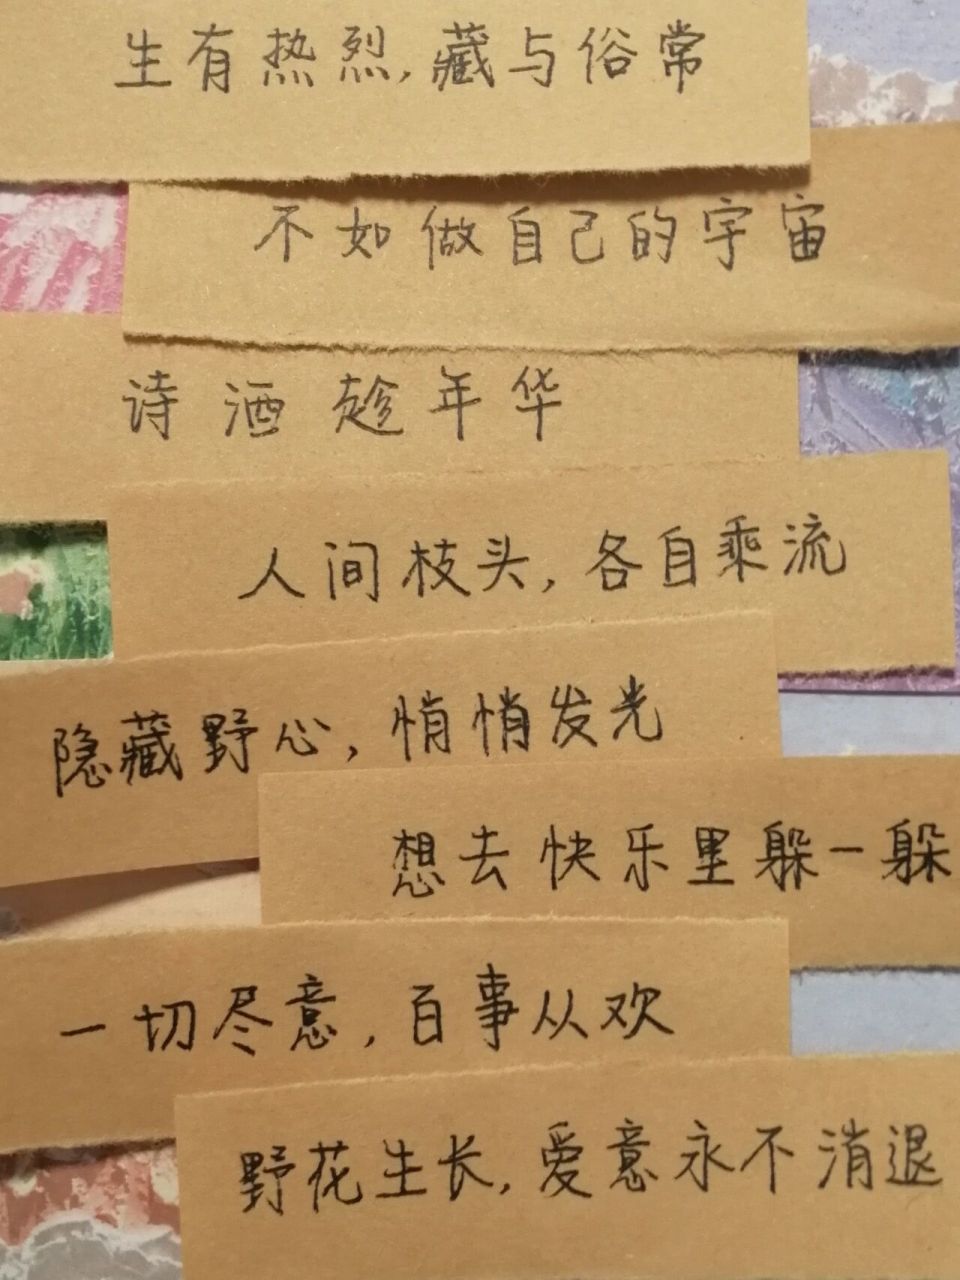 生有热烈,藏与俗常
不如做自己的宇宙
诗酒趁年华
人间枝头,各自乘流
隐藏野心,悄悄发光
想去快乐里躲一躲
一切尽意,百事从欢
野花生长,爱意永不消退